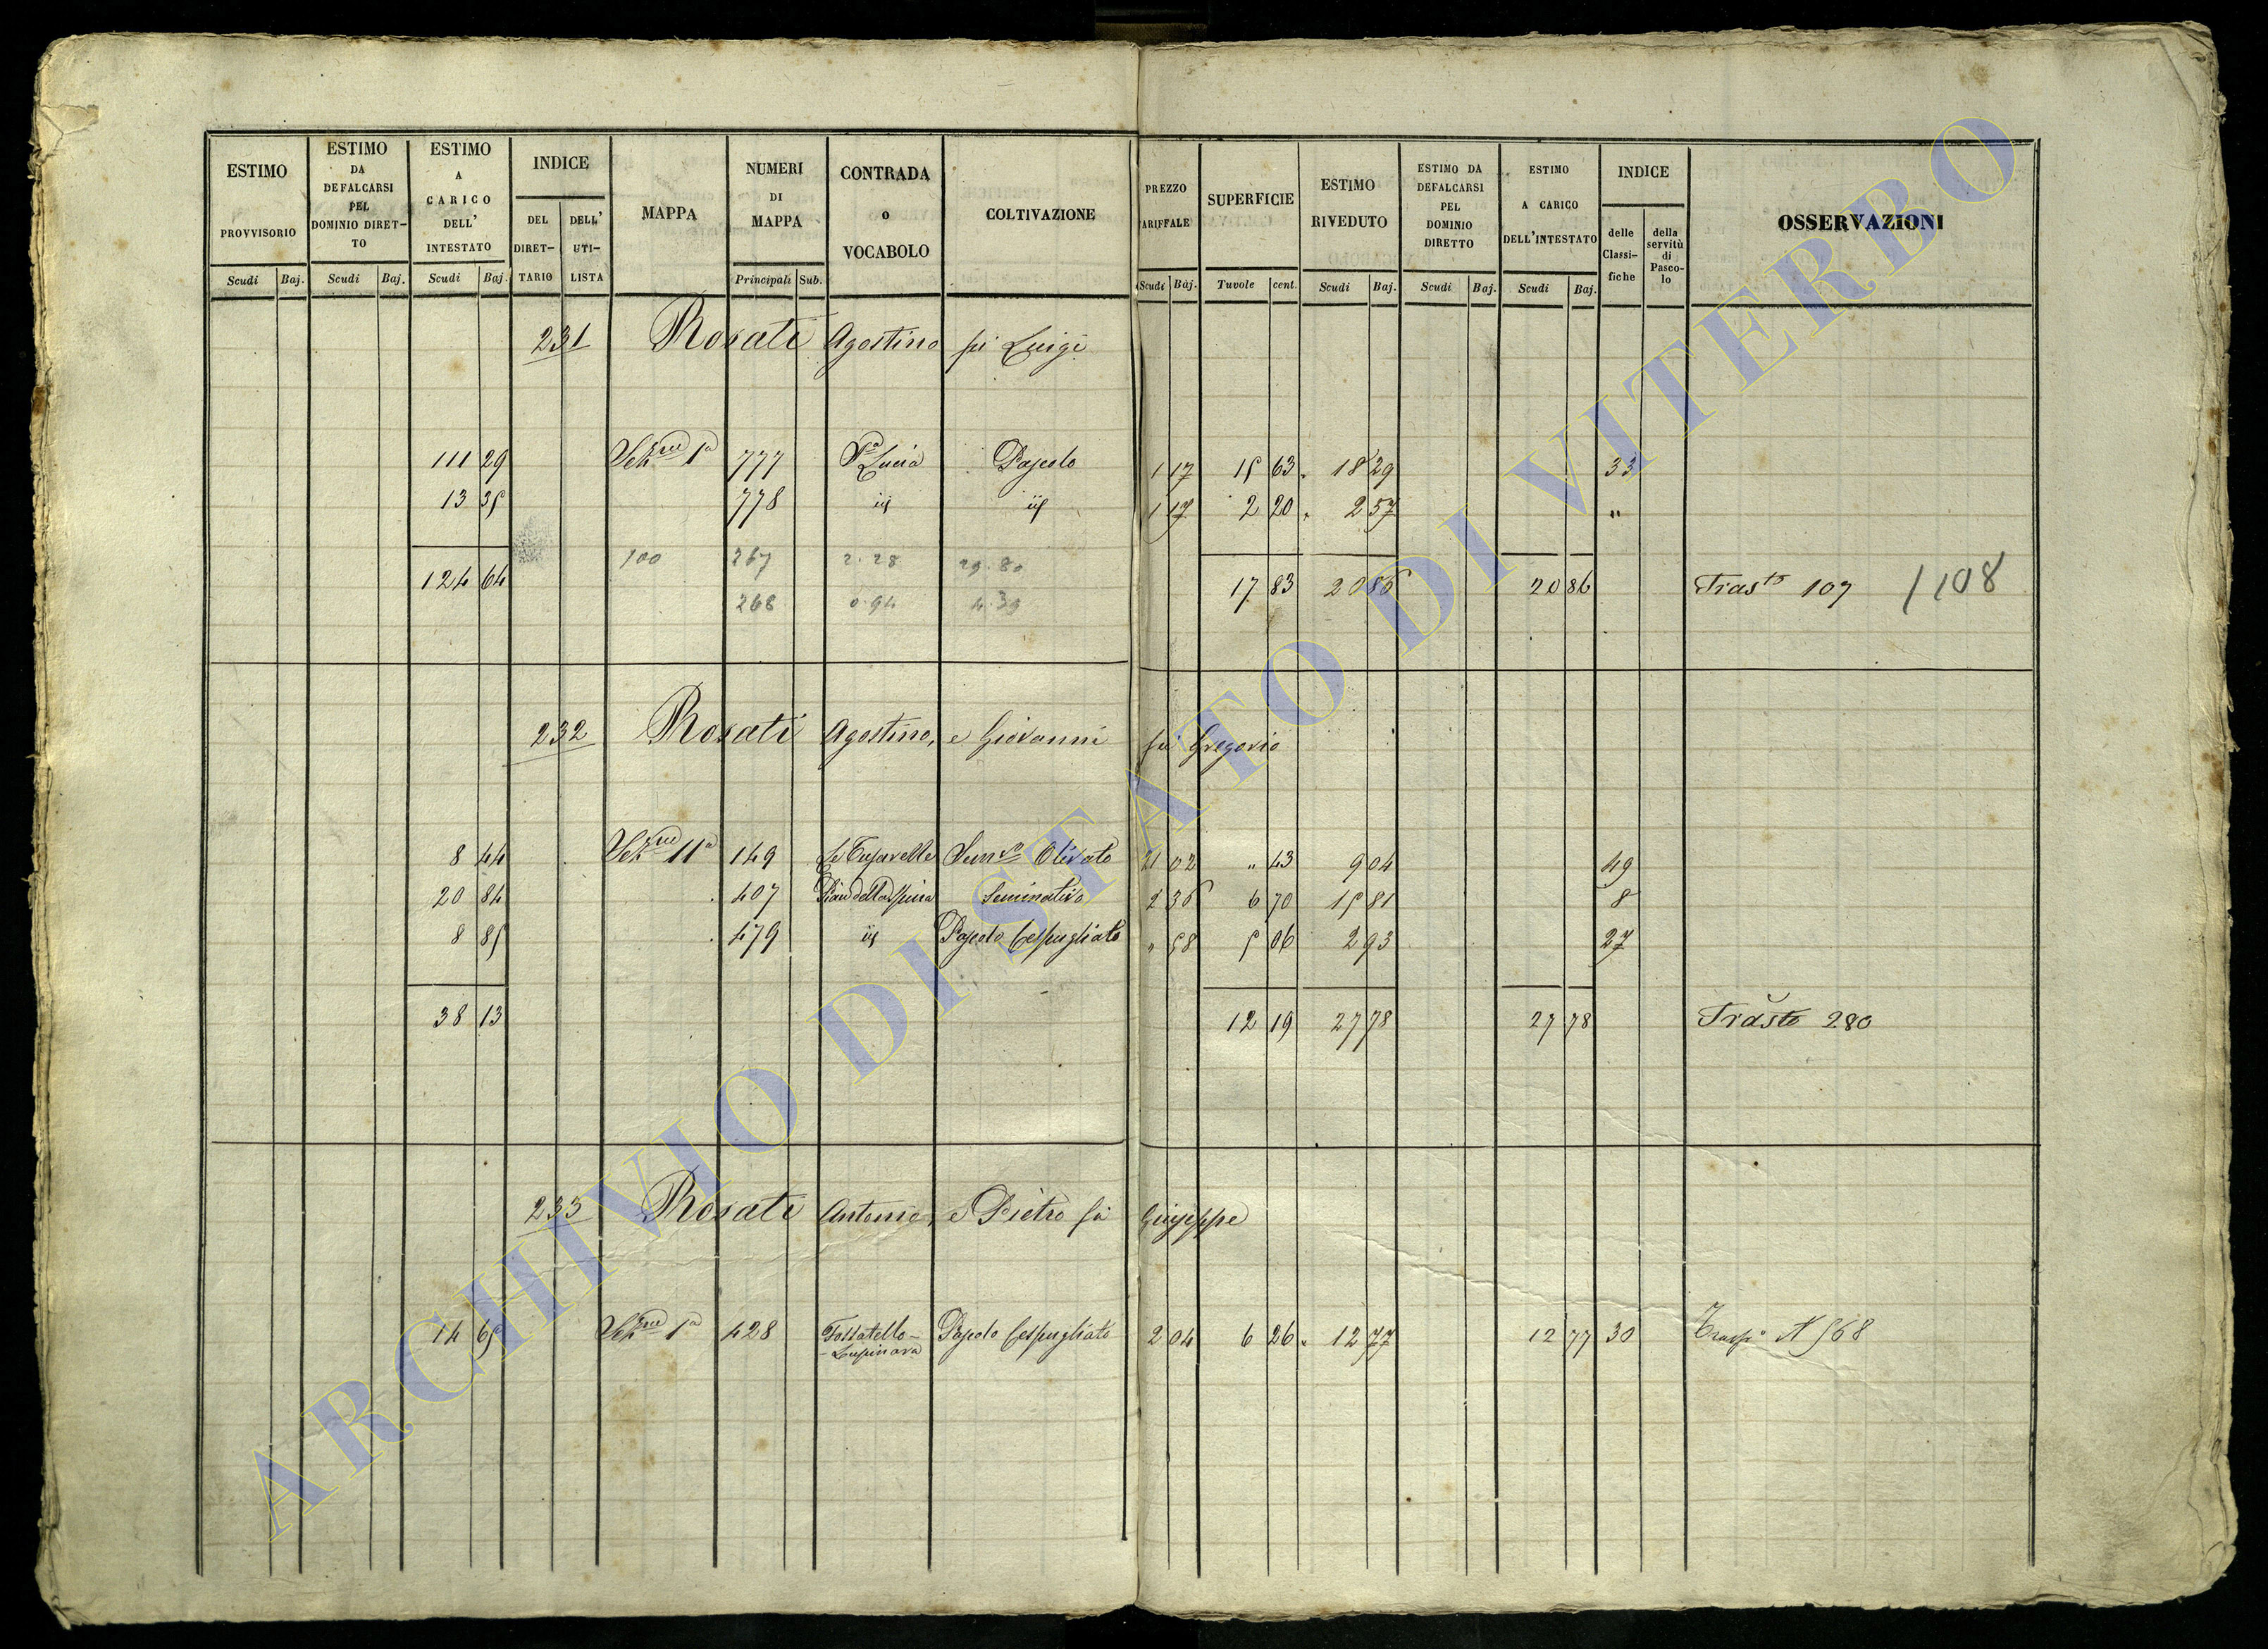 ESTIMO PROVVISORIO
Scudi Baj.
ESTIMO DA DEFALCARSI PEL DOMINIO DIRET-TO
Scudi Baj.
ESTIMO A CARICO DELL' INTESTATO
Scudi Baj.
INDICE
DEL DIRET-TARIO
DELL' UTI-LISTA
MAPPA
NUMERI DI MAPPA
Principali Sub.
CONTRADA o VOCABOLO
COLTIVAZIONE
PREZZO TARIFFALE
Scudi Baj.
SUPERFICIE
Tavole cent.
ESTIMO RIVEDUTO
Scudi Baj.
ESTIMO DA DEFALCARSI PEL DOMINIO DIRETTO
Scudi Baj.
ESTIMO A CARICO DELL'INTESTATO
Scudi Baj.
INDICE
delle Classi-fiche
della servitù di Pasco-lo
OSSERVAZIONI
231 Rosati Agostino fù Luigi
111 29 Sezne 1a 777 Sa Lucia Pascolo 1 17 15 63 18 29 33
13 35 778 id id 1 17 2 20 2 57 "
100 267 2.28 29.80
124 64 17 83 20 86 20 86 Trasto 107 / 108
268 0.94 4.39
232 Rosati Agostino, e Giovanni fù Gregorio
8 44 Sezne 11a 149 Semvo Olivato 21 02 " 43 9 04 49
20 84 407 Pian della Spina Seminativo 2 36 6 70 15 81 8
8 85 479 id Pascolo Cespugliato " 58 5 06 2 93 27
38 13 12 19 27 78 27 78 Trasto 280
233 Rosati Antonio, e Pietro fù Giuseppe
14 65 Sezne 1a 428 Fossatello - Pascolo Cespugliato 2 04 6 26 12 77 12 77 30 N 568
- Lupinara
ARCHIVIO DI STATO DI VITERBO